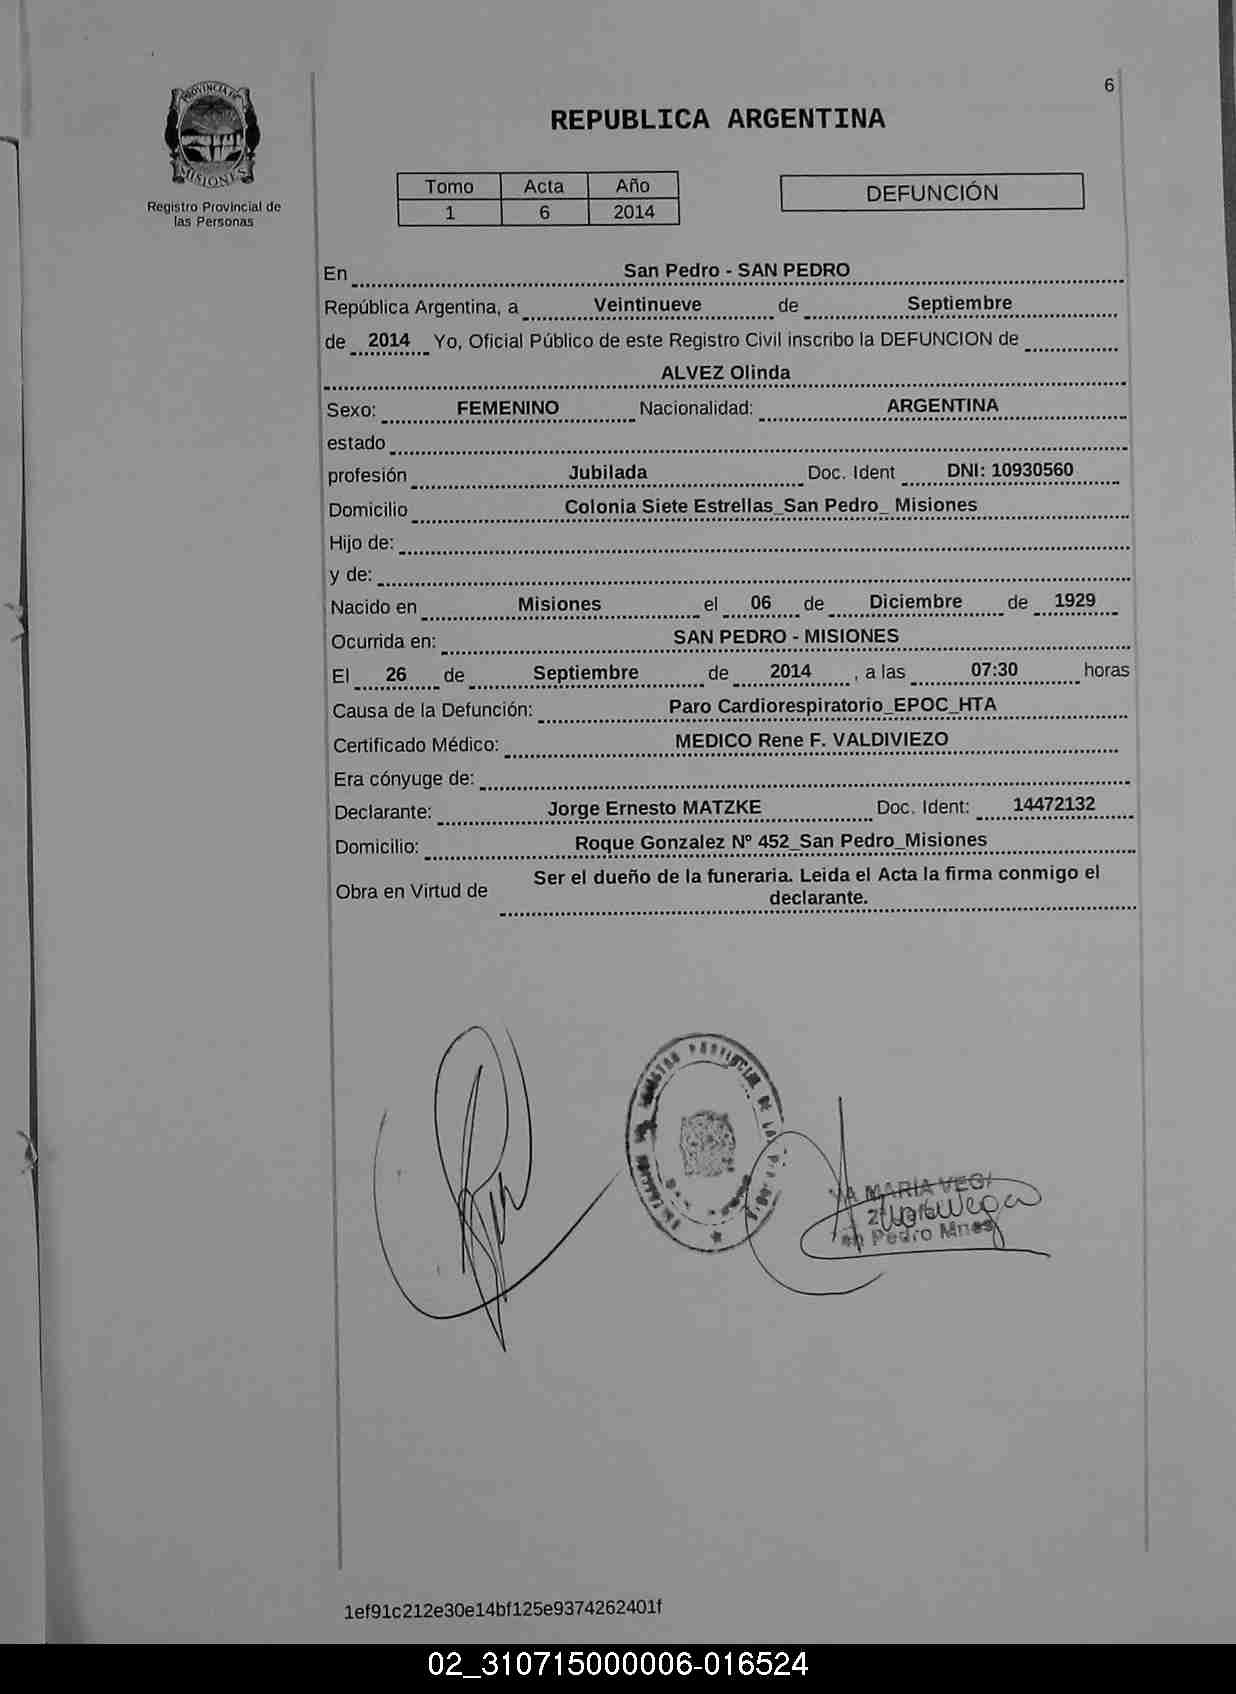 6
PROVINCIA DE
MISIONES
Registro Provincial de
las Personas
REPUBLICA ARGENTINA
Tomo Acta Año
1 6 2014
DEFUNCIÓN
En San Pedro - SAN PEDRO
República Argentina, a Veintinueve de Septiembre
de 2014 Yo, Oficial Público de este Registro Civil inscribo la DEFUNCION de
ALVEZ Olinda
Sexo: FEMENINO Nacionalidad: ARGENTINA
estado
profesión Jubilada Doc. Ident DNI: 10930560
Domicilio Colonia Siete Estrellas_San Pedro_ Misiones
Hijo de:
y de:
Nacido en Misiones el 06 de Diciembre de 1929
Ocurrida en: SAN PEDRO - MISIONES
El 26 de Septiembre de 2014 , a las 07:30 horas
Causa de la Defunción: Paro Cardiorespiratorio_EPOC_HTA
Certificado Médico: MEDICO Rene F. VALDIVIEZO
Era cónyuge de:
Declarante: Jorge Ernesto MATZKE Doc. Ident: 14472132
Domicilio: Roque Gonzalez Nº 452_San Pedro_Misiones
Obra en Virtud de Ser el dueño de la funeraria. Leida el Acta la firma conmigo el
declarante.
PROVINCIAL DE
MARIA
Pedro Mnes
1ef91c212e30e14bf125e9374262401f
02_310715000006-016524